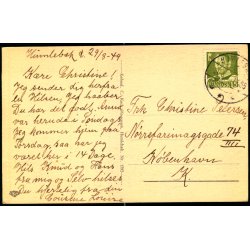 Humlebæk d. 29/8-49
Kære Christine!
Jeg sender dig herfra
en Hilsen, Jeg haaber
Du har det godt,
var derude i Søndags
Jeg kommer hjem paa
Torsdag, saa har jeg
været her i 14 Dage.
Hils Knud og Hans
fra mig og selv hilses
Du hjertelig fra din
Cousine
Frk Christine Petersen
Nørrefarimagsgade 74
III
København
K